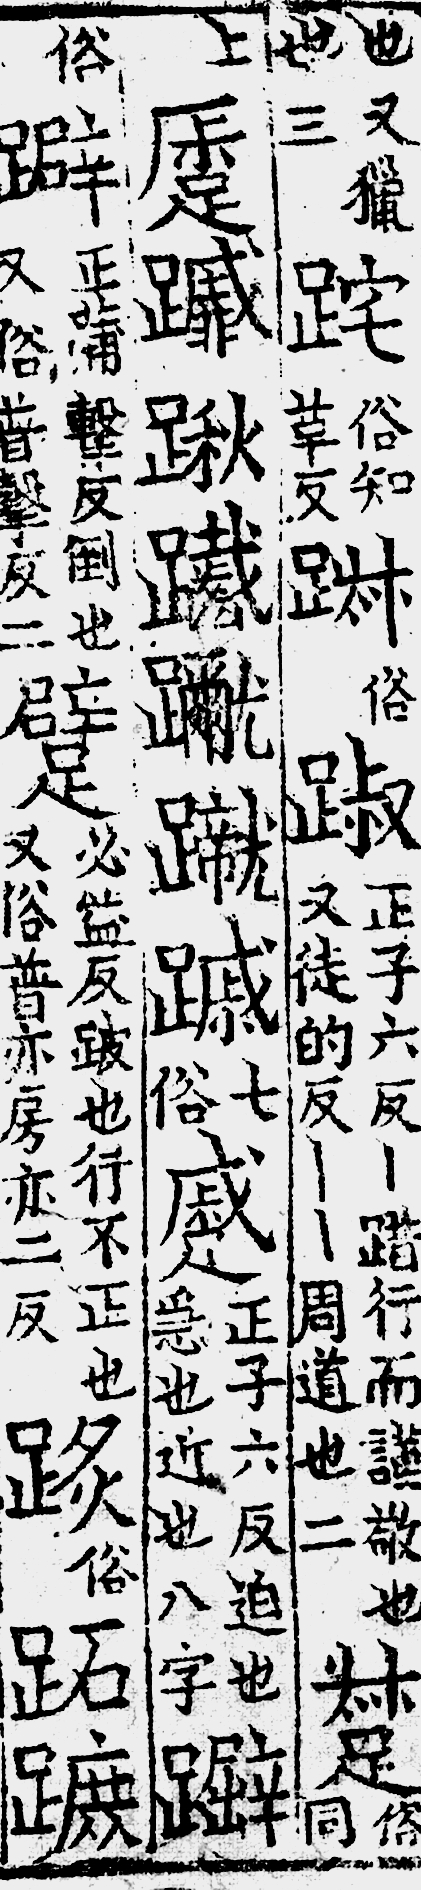 也又獵也三𨀍俗知草反俗踧正子六反丨踖行而謹敬也又徒的反丨丨周道也二俗同
上踿䠞七俗蹙正子六反迫也急也近也八字
俗躃正蒱擊反倒也又俗普擊反二躄必益反跛也行不正也又俗普亦房亦二反俗跖蹠